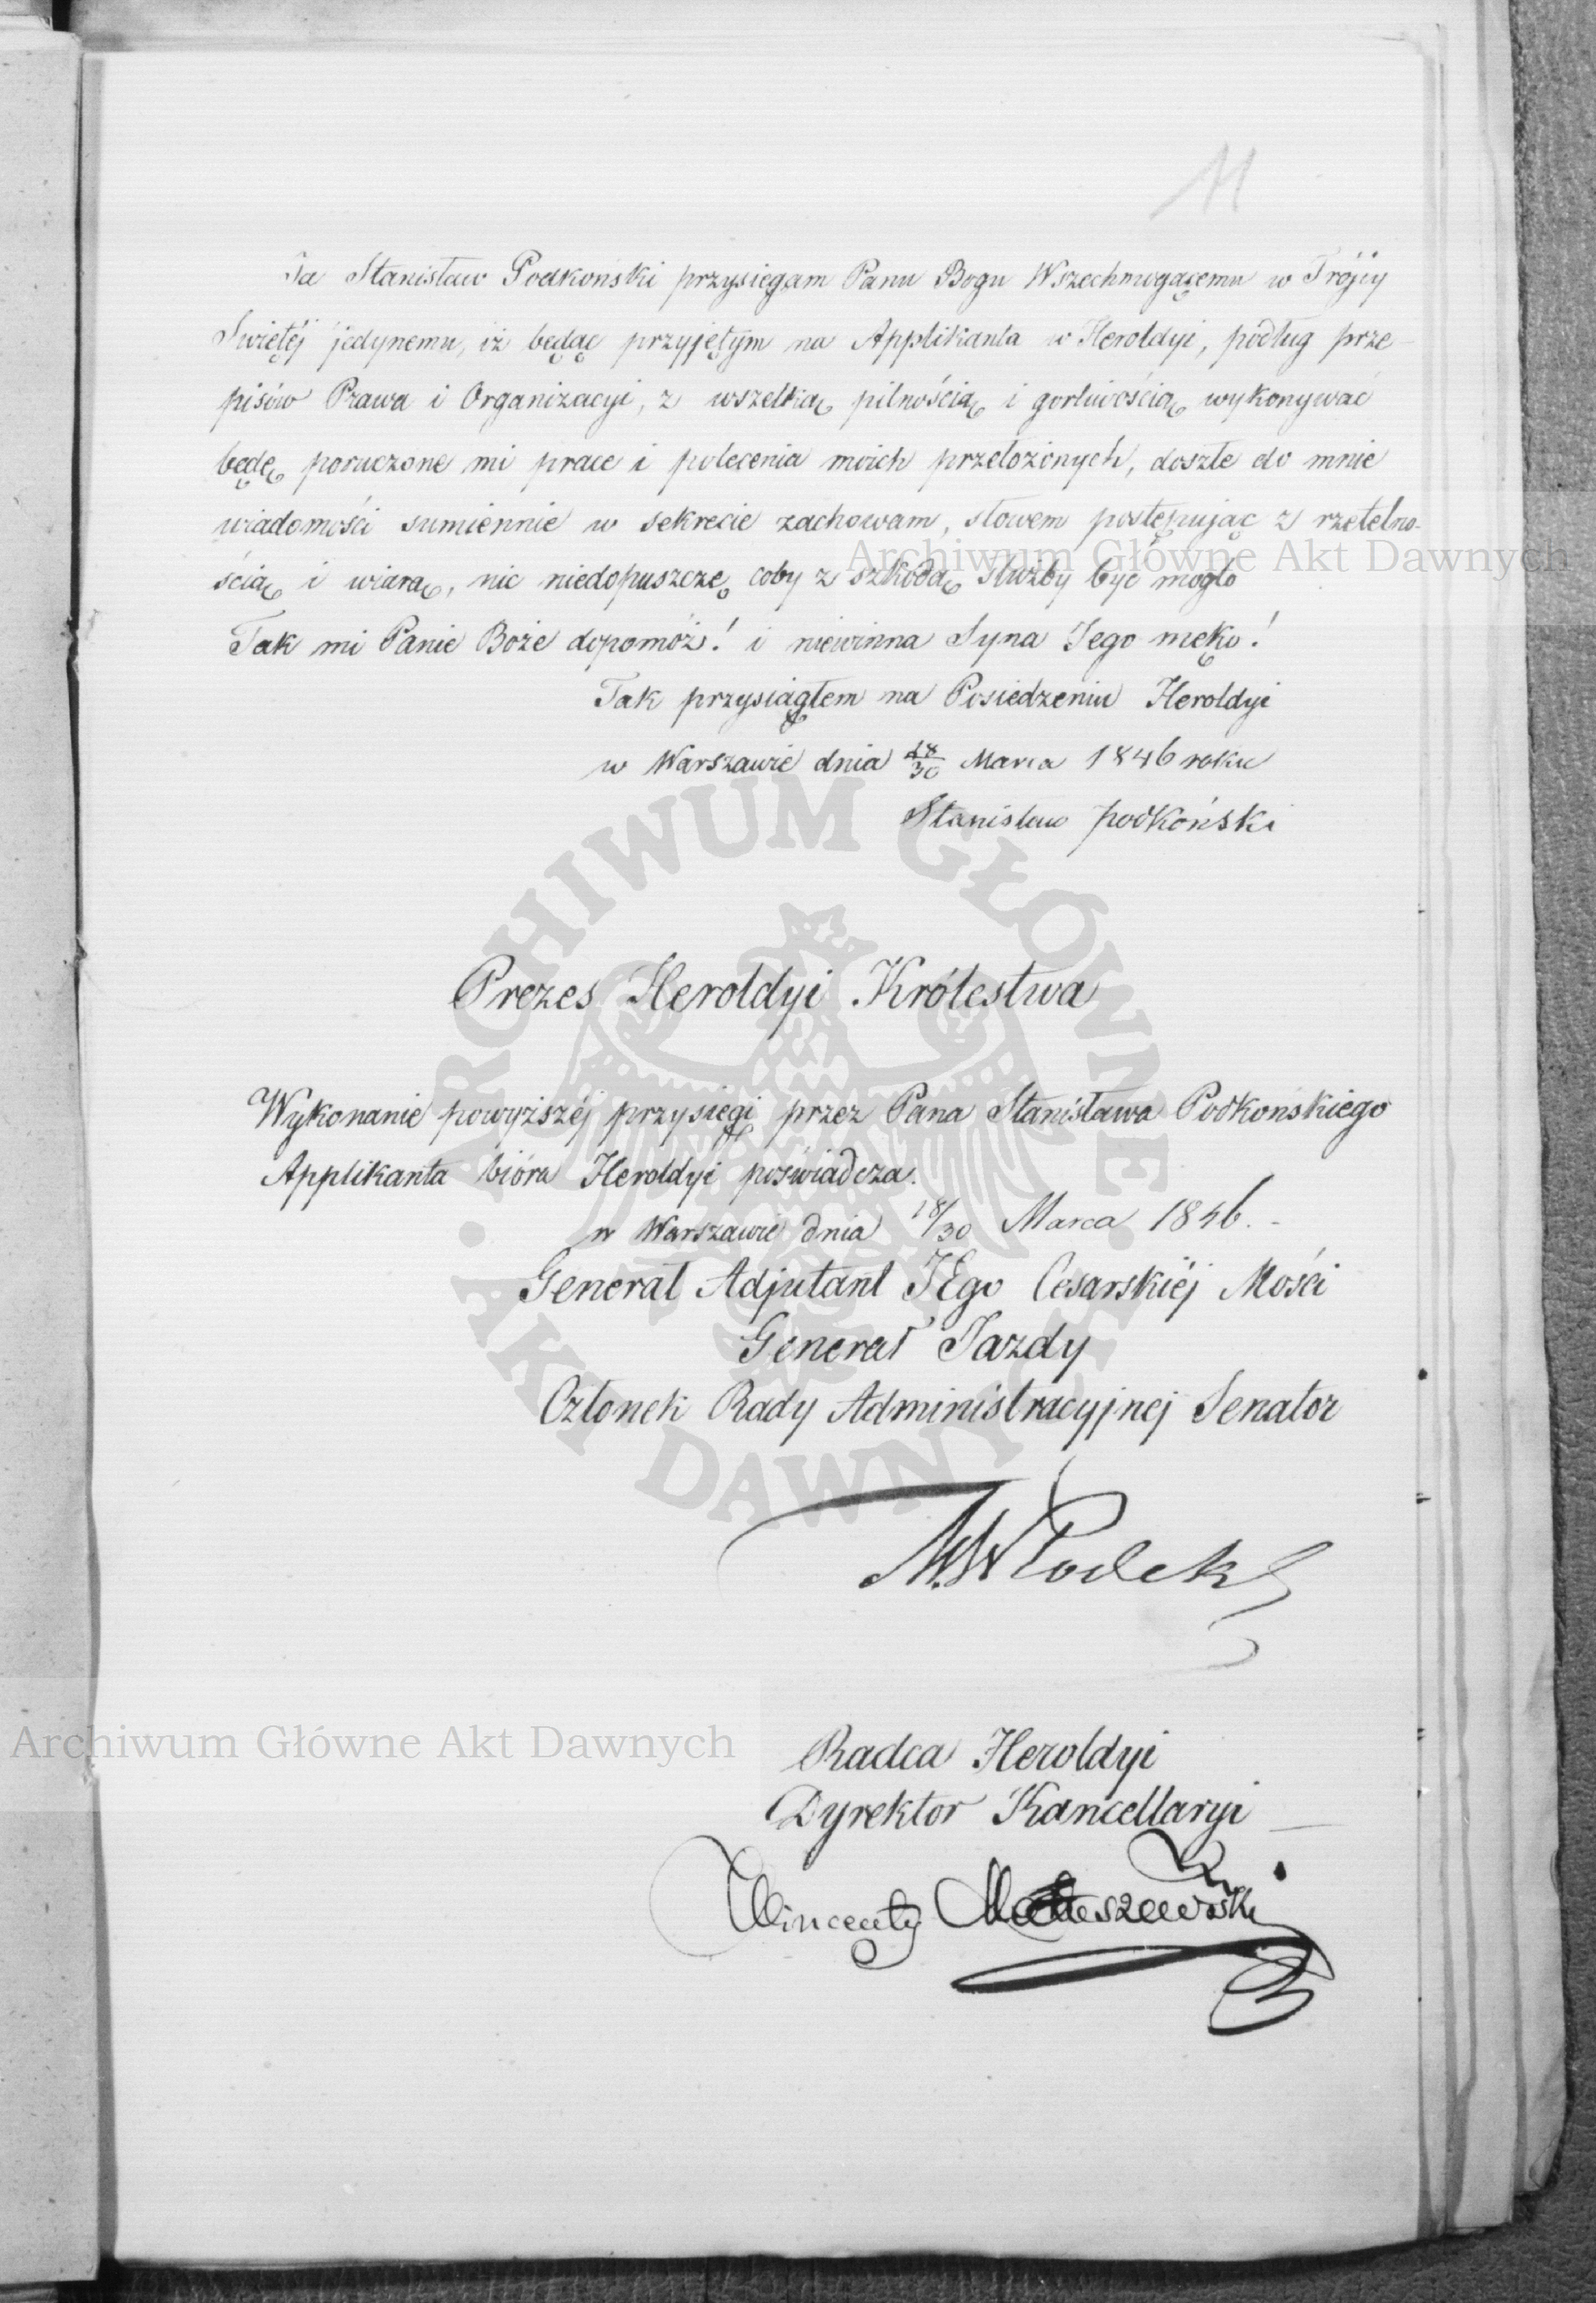 11
Ja Stanisław Podkoński przysięgam Panu Bogu Wszechmogącemu w Trójcy
Świętéj jedynemu, iż będąc przyjętym na Applikanta w Heroldyi, podług prze-
pisów Prawa i Organizacyi, z wszelką pilnością i gorliwością wykonywać
będę poruczone mi prace i polecenia moich przełożonych, doszłe do mnie
wiadomości sumiennie w sekrecie zachowam, słowem postępując z rzetelno-
ścią i wiarą, nic niedopuszczę coby z szkodą służby być mogło
Tak mi Panie Boże dopomóż! i niewinna Syna Jego męko!
Tak przysiągłem na Posiedzeniu Heroldyi
w Warszawie dnia 18/30 Marca 1846 roku
Stanisław Podkoński
Prezes Heroldyi Królestwa
Wykonanie powyższéj przysięgi przez Pana Stanisława Podkońskiego
Applikanta bióra Heroldyi poświadcza.
w Warszawie dnia 18/30 Marca 1846. -
Generał Adjutant JEgo Cesarskiéj Mości
Generał Jazdy
Członek Rady Administracyjnej Senator
Radca Heroldyi
Dyrektor Kancellaryi
Wincenty Matuszewski
ARCHIWUM GŁÓWNE · AKT DAWNYCH ·
Archiwum Główne Akt Dawnych
Archiwum Główne Akt Dawnych